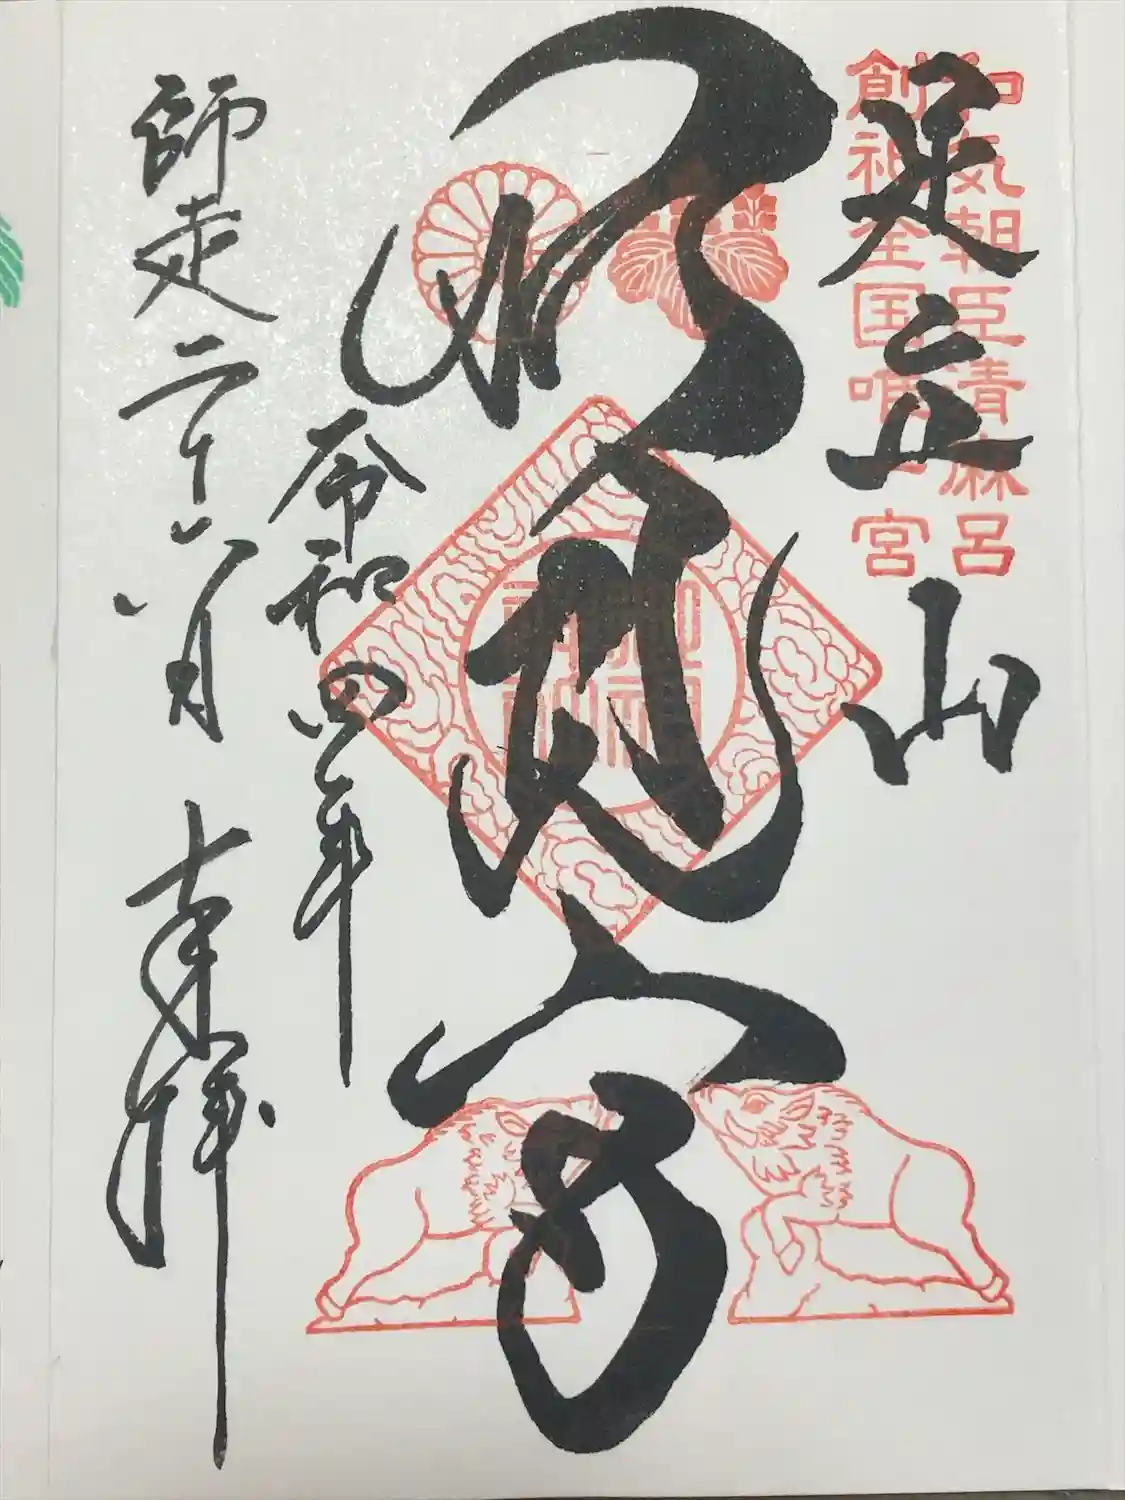 和気朝臣清麻呂
創祀全国唯一宮
足立山
妙見宮
令和四年
師走二十六日 奉拝